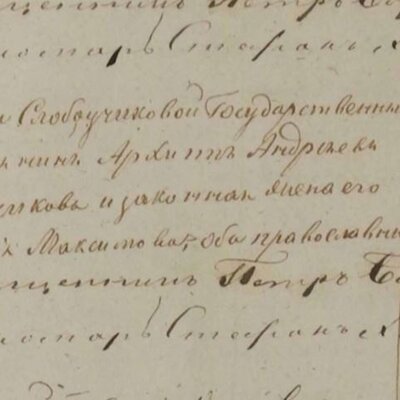 щенникъ Петръ
номарь Стефанъ
Слободчиковой Государственный
нинъ Архиппъ Андреевъ
иковъ и законная жена его
Максимова, оба православна
щенникъ Петръ
номарь Стефанъ